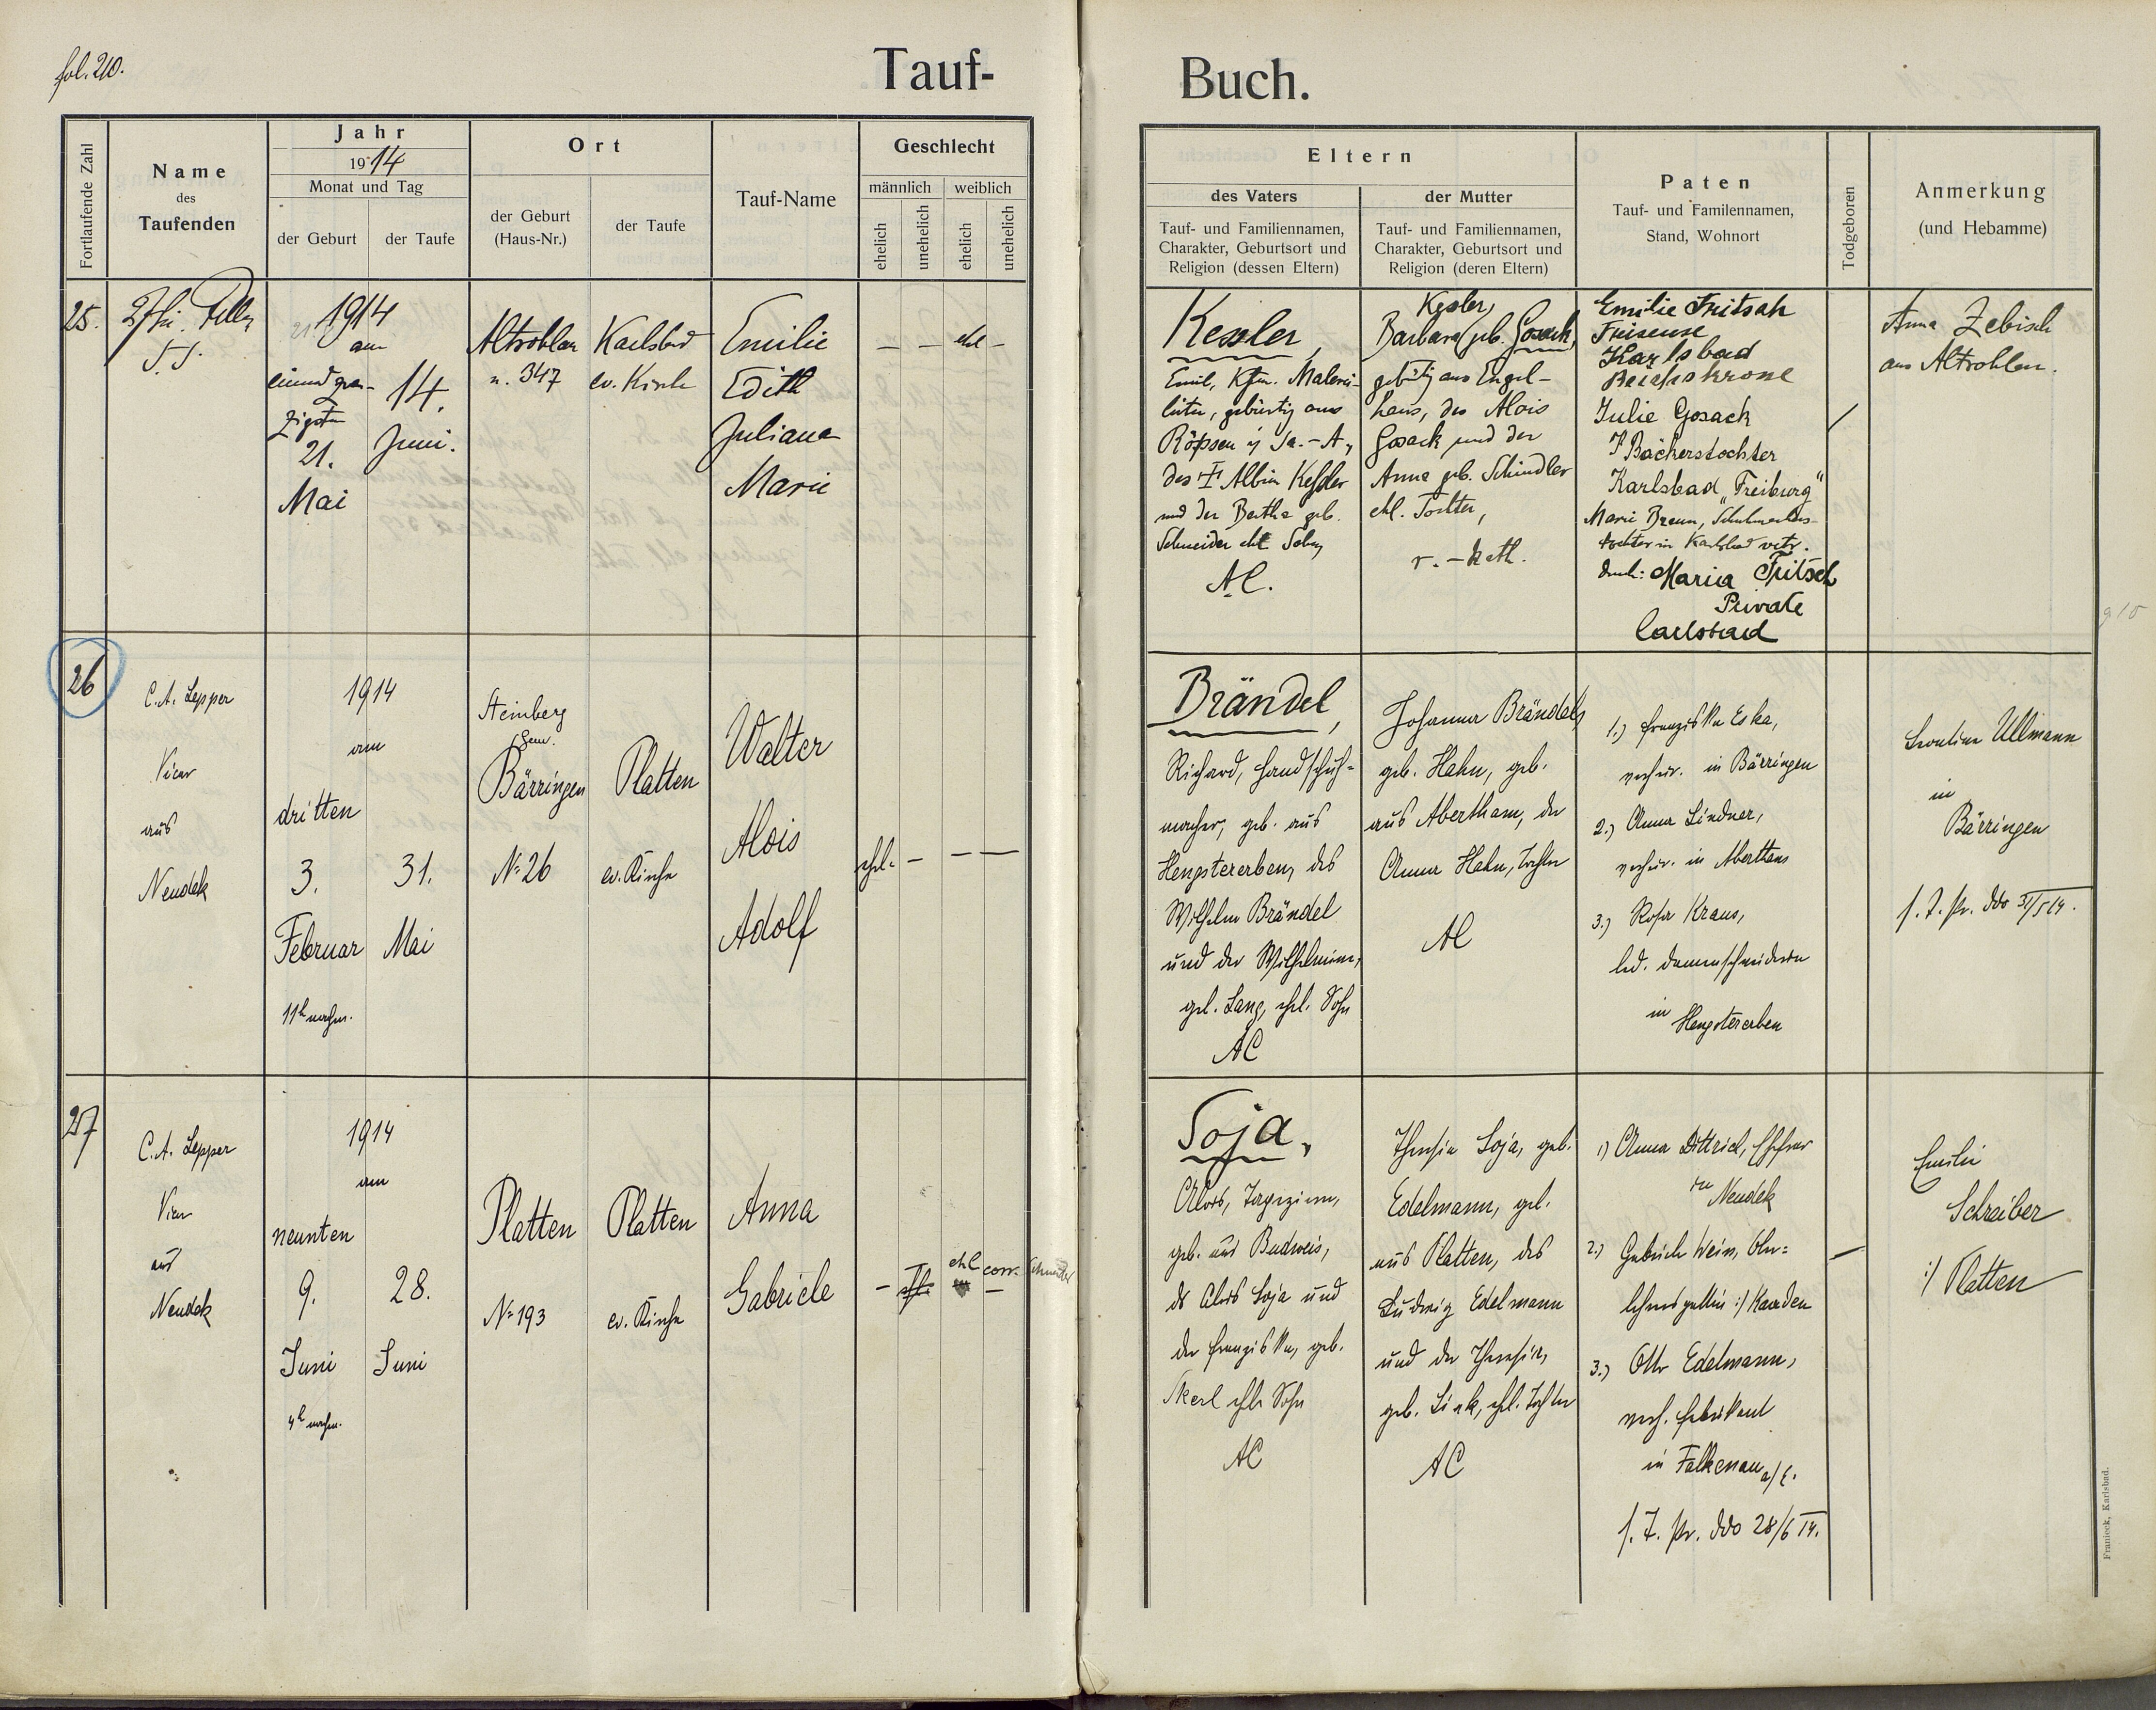 fol. 210.
Tauf-
Buch.
Fortlaufende Zahl
Name
des
Taufenden
Jahr
1914
Monat und Tag
der Geburt
der Taufe
Ort
der Geburt
(Haus-Nr.)
der Taufe
Tauf-Name
Geschlecht
männlich
weiblich
ehelich
unehelich
ehelich
unehelich
Eltern
des Vaters
Tauf- und Familiennamen,
Charakter, Geburtsort und
Religion (dessen Eltern)
der Mutter
Tauf- und Familiennamen,
Charakter, Geburtsort und
Religion (deren Eltern)
Paten
Tauf- und Familennamen,
Stand, Wohnort
Todgeboren
Anmerkung
(und Hebamme)
25.
1914
am
21.
Mai
14.
Juni.
Altrohlau
n. 347
Karlsbad
ev. Kirche
Emilie
Edith
Juliana
Marie
— — ehl —
Kessler,
Emil,
gebürtig aus
des † Albin Keßler
und der Bertha geb.
Schneider ehl Sohn
A.C.
Kesler,
Barbara geb. Gosack,
gebürtig aus Engel-
haus, des Alois
Gosack und der
Anna geb. Schindler
ehl. Tochter,
r. - kath.
Emilie Fritsch
Friseuse
Karlsbad
Reichskrone
Julie Gosack
Bäckerstochter
Karlsbad „Freiburg"
Marie Braun,
tochter in Karlsbad vertr.
durch: Maria Fritsch
Private
Carlsbad
Anna Zebisch
aus Altrohlau.
26
C. A. Lepper
Vicar
aus
Neudek
1914
am
dritten
3.
Februar
11h nachm.
31.
Mai
Steinberg
Gem.
Bärringen
No 26
Platten
ev. Kirche
Walter
Alois
Adolf
ehl. — — —
Brändel,
Richard, Handschuh-
macher, geb. aus
Hengstererben, des
Wilhelm Brändel
und der Wilhelmine,
geb. Lang, ehl. Sohn
AC
Johanna Brändel,
geb. Hahn, geb.
aus Abertham, der
Anna Hahn, Tochter
AC
1.) Franziska Eska,
verheir. in Bärringen
2.) Anna Lindner,
verheir. in Abertham
3.) Rosa Kraus,
led. Damenschneiderin
in Hengstererben
Leontine Ullmann
in
Bärringen
f. T. Pr. ddo 31/5 14.
27
C. A. Lepper
Vicar
aus
Neudek
1914
am
neunten
9.
Juni
4h nachm.
28.
Juni
Platten
No 193
Platten
ev. Kirche
Anna
Gabriele
— ehl corr. —
Soja,
Alois, Tapezierer,
geb. aus Budweis,
des Alois Soja und
der Franziska, geb.
ehl. Sohn
AC
Theresia Soja, geb.
Edelmann, geb.
aus Platten, des
Ludwig Edelmann
und der Theresia,
geb. Link, ehl. Tochter
AC
1) Anna Dittrich, Ehefrau
in Neudek
2.) Gabriele Wein, Ober-
lehrersgattin :/ Kaaden
3.) Otto Edelmann,
verh. Fabrikant
in Falkenau a/E.
f. T. Pr. ddo 28/6 14.
Emilie
Schreiber
:/ Platten
Franieck, Karlsbad.